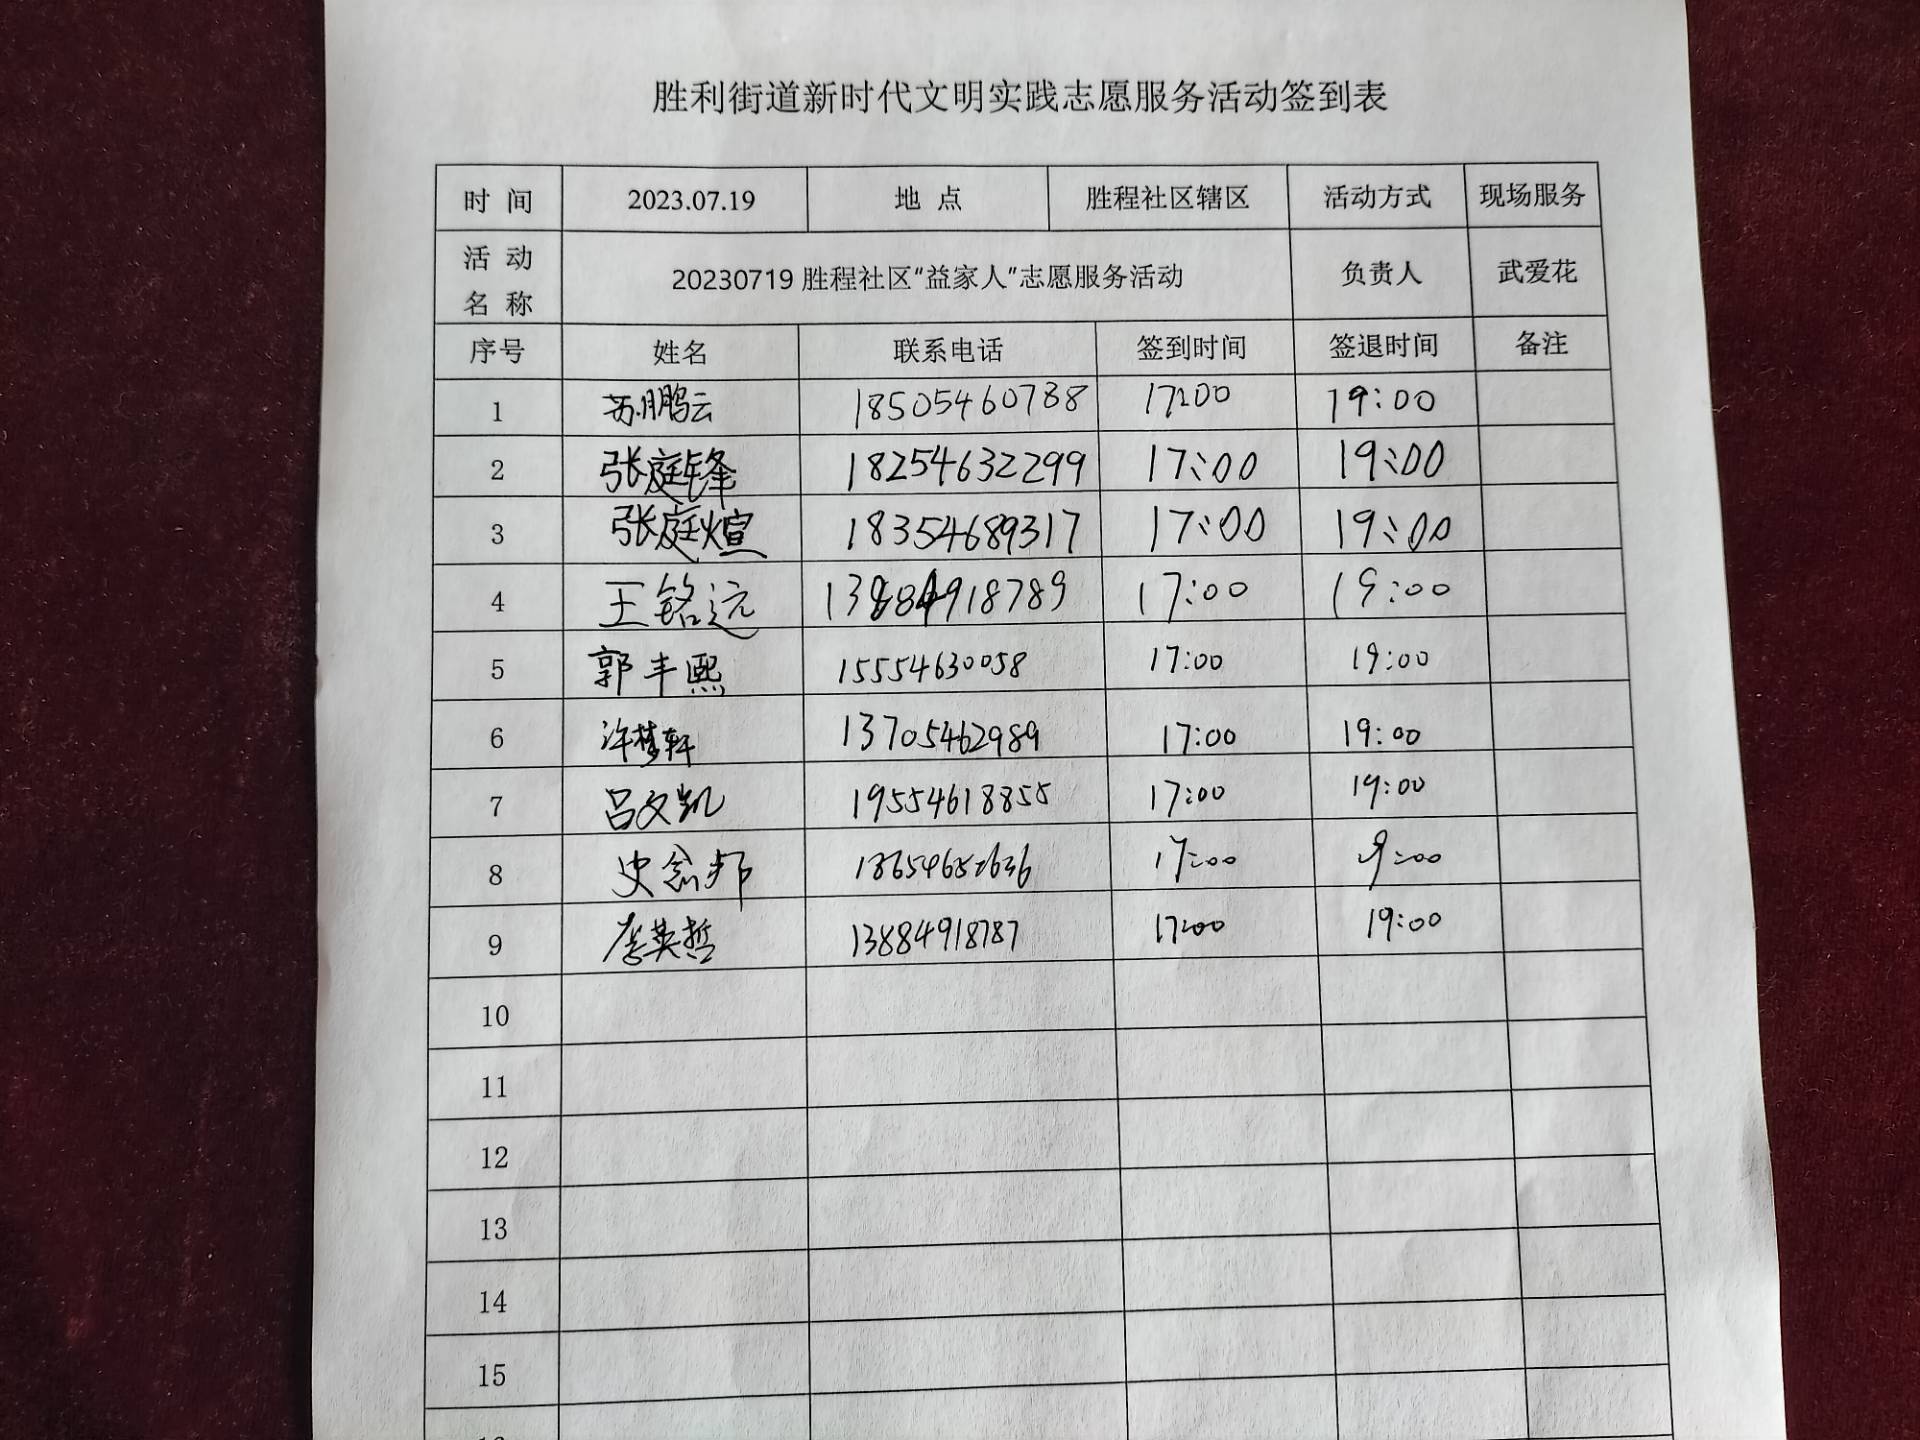 胜利街道新时代文明实践志愿服务活动签到表
时 间 2023.07.19 地 点 胜程社区辖区 活动方式 现场服务
活 动
名 称 20230719胜程社区“益家人”志愿服务活动 负责人 武爱花
序号 姓名 联系电话 签到时间 签退时间 备注
1 苏鹏云 18505460738 17:00 19:00
2 张庭锋 18254632299 17:00 19:00
3 张庭煊 18354689317 17:00 19:00
4 王铭远 13884918789 17:00 19:00
5 郭丰熙 15554630058 17:00 19:00
6 许梦轩 13705462989 17:00 19:00
7 吕文凯 19554618855 17:00 19:00
8 史念邦 17:00 19:00
9 李英哲 13884918787 17:00 19:00
10
11
12
13
14
15